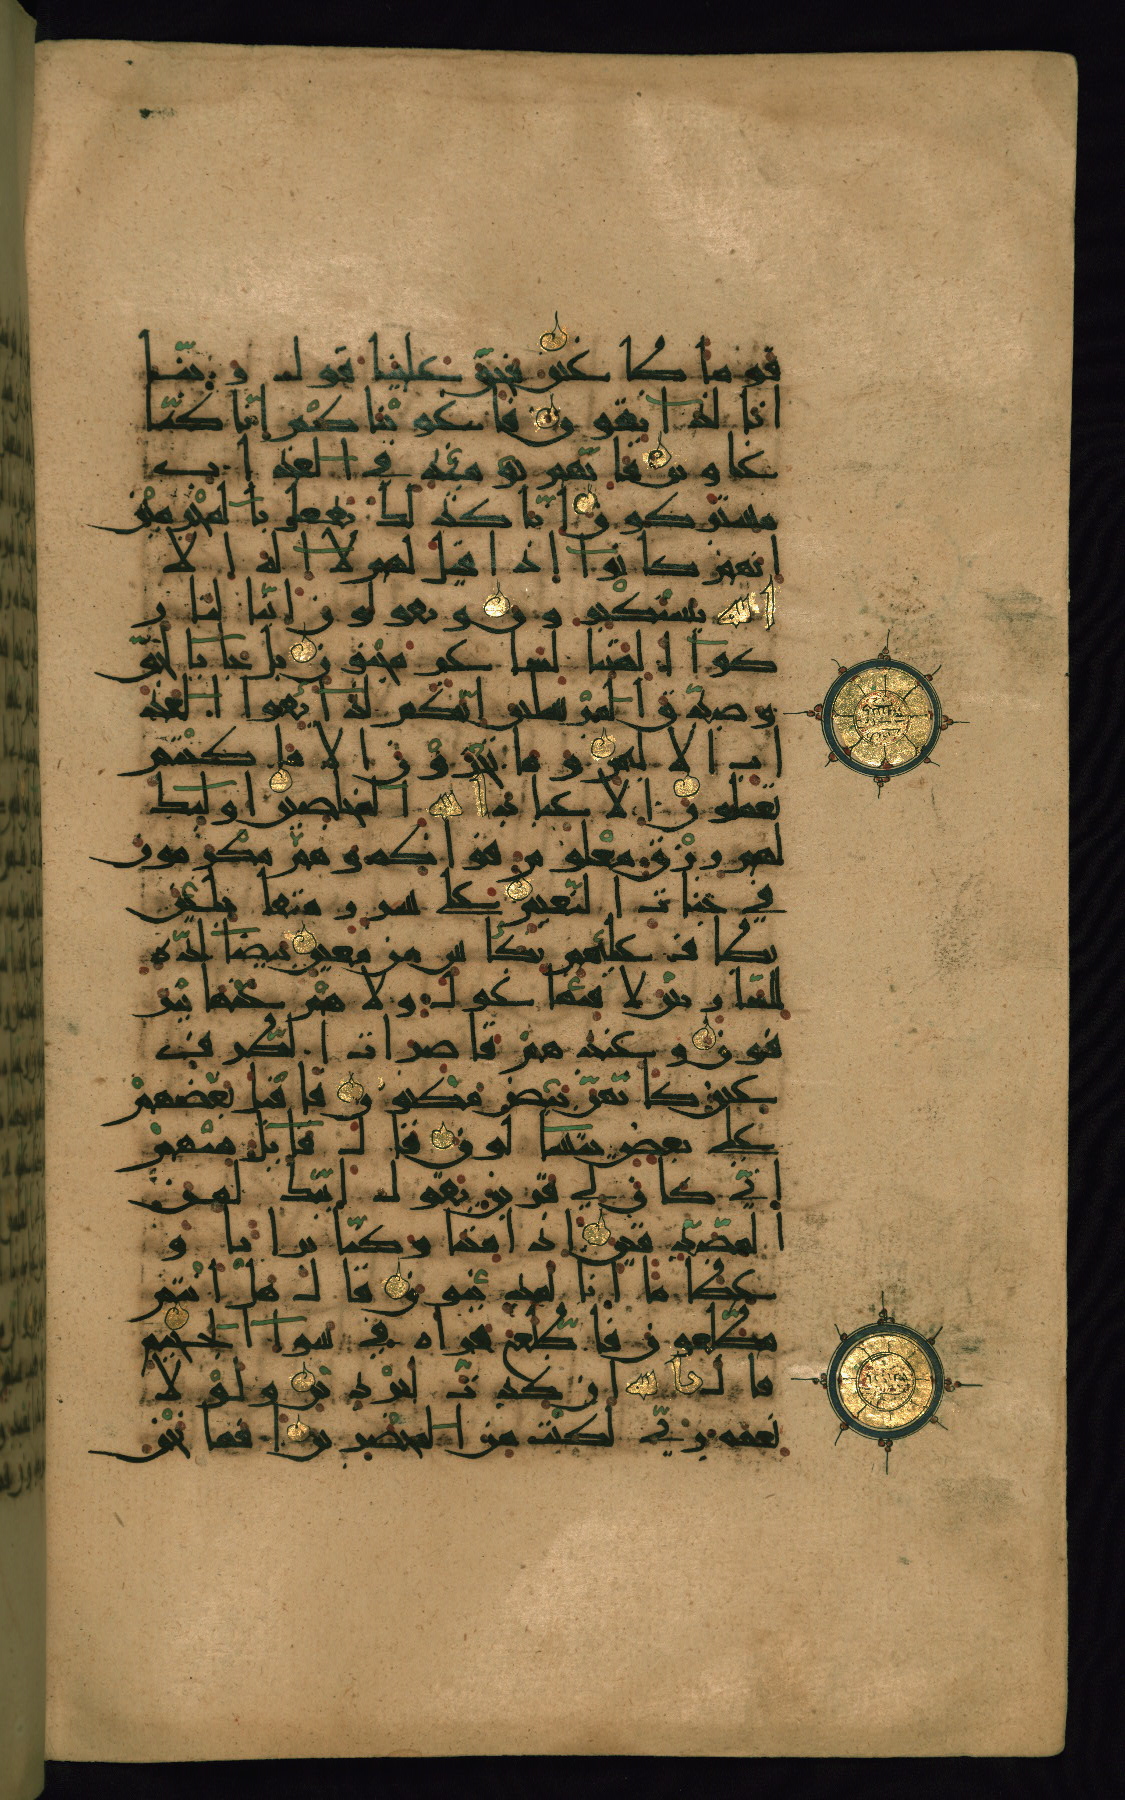 قوما طاغين فحق علينا قول ربنا
انا لذائقون فاغويناكم انا كنا
غاوين فانهم يومئذ في العذاب
مشتركون انا كذلك نفعل بالمجرمين
انهم كانوا اذا قيل لهم لا اله الا
الله يستكبرون ويقولون ائنا لتار
كوا الهتنا لشاعر مجنون بل جا بالحق
وصدق المرسلين انكم لذائقوا العذ
اب الاليم وما تجزون الا ما كنتم
تعملون الا عباد الله المخلصين اولئك
لهم رزق معلوم فواكه وهم مكرمون
في جنات النعيم على سرر متقابلين
يطاف عليهم بكاس من معين بيضا لذة
للشاربين لا فيها غول ولا هم عنها ينز
فون وعندهم قاصرات الطرف
عين كانهن بيض مكنون فاقبل بعضهم
على بعض يتسالون قال قائل منهم
اني كان لي قرين يقول ائنك لمن
المصدقين اذا متنا وكنا ترابا و
عظاما انا لمدينون قال هل انتم
مطلعون فاطلع فراه في سوا الجحيم
قال تالله ان كدت لتردين ولولا
نعمة ربي لكنت من المحضرين افما نحن